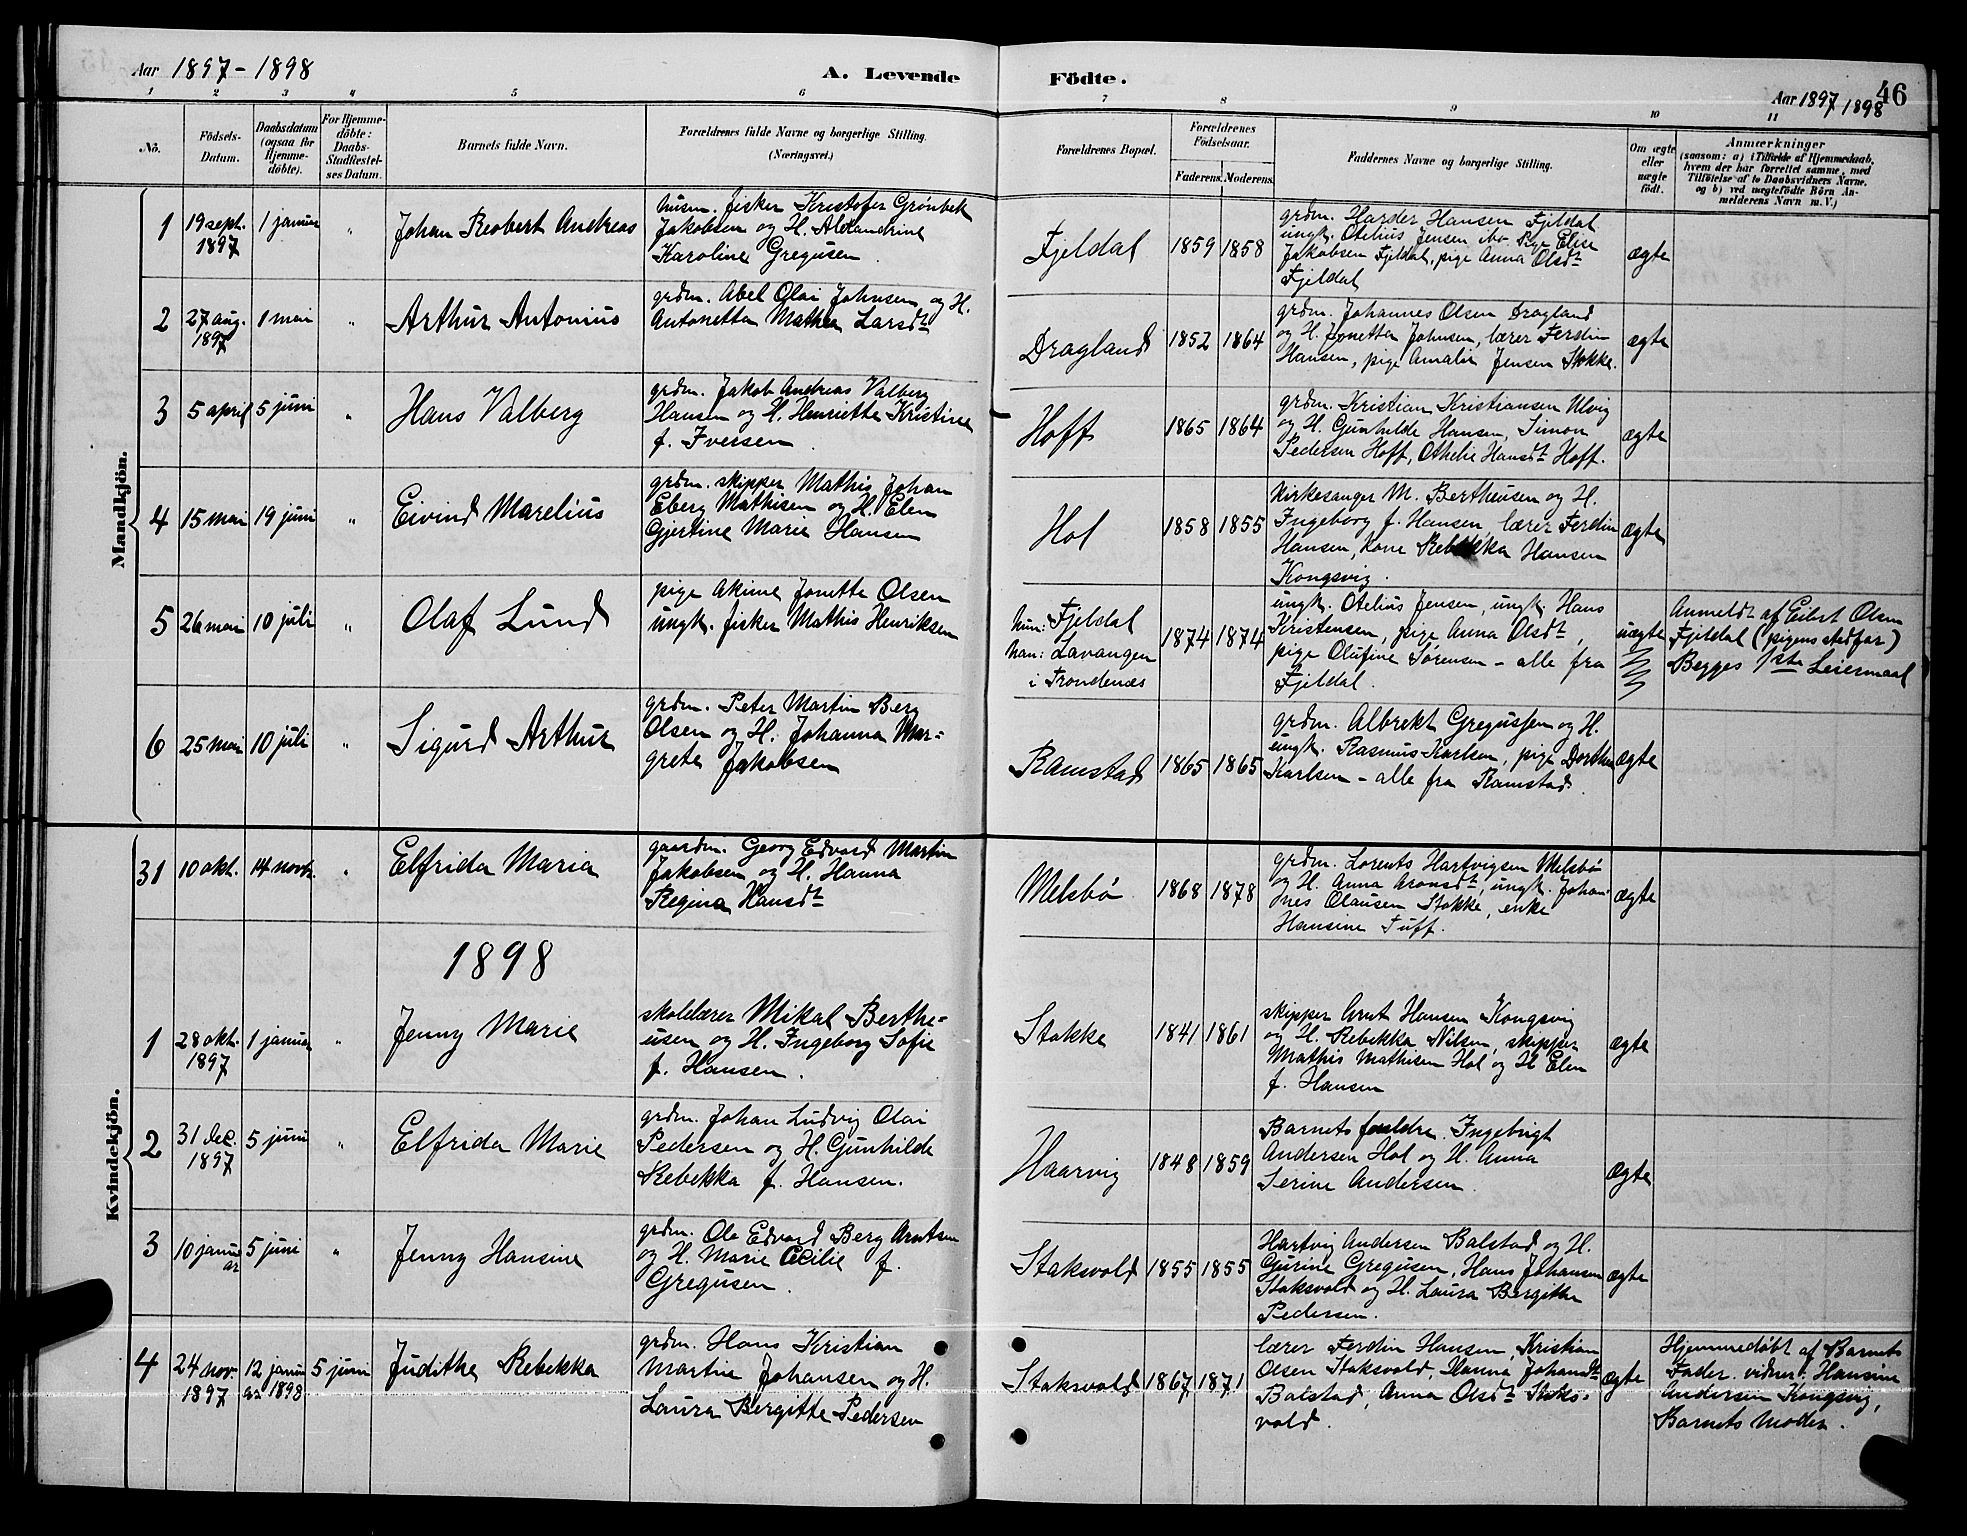 Aar 1897-1898
A. Levende
Födte.
Aar 1897 1898
46
1 2 3 4 5 6 7 8 9 10 11
No.
Födsels-
Datum.
Daabsdatum
(ogsaa for
Hjemme-
döbte).
For Hjemme-
döbte:
Daabs-
Stadfæstel-
ses Datum.
Barnets fulde Navn.
Forældrenes fulde Navne og borgerlige Stilling.
(Næringsvei.)
Forældrenes Bopæl.
Forældrenes
Födselsaar.
Faderens. Moderens.
Faddernes Navne og borgerlige Stilling.
Om ægte
eller
uægte
födt.
Anmærkninger
(saasom: a) i Tilfælde af Hjemmedaab,
hvem der har forrettet samme, med
Tilföielse af to Daabsvidners Navne,
og b) ved uægtefödte Börn An-
melderens Navn m. V.)
Mandkjön.
1
19 sept.
1897
1 januar
"
Johan Reobert Andreas
husm. fisker Kristofer Grönbek
Jakobsen og H. Alexandrine
Karoline Gregusen
Fjeldal
1859 1858
grdm. Harder Hansen Fjeldal
ungk. Otelius Jensen ibv pige Elise
Jakobsen Fjeldal, pige Anna Olsdt
Fjeldal
ægte
2
27 aug.
1897
1 mai
"
Arthur Antonius
grdm. Abel Olai Johnsen og H.
Antonetta Mathea Larsdt
Dragland
1852 1864
grdm. Johannes Olsen Dragland
og H. Jonetta Johnsen, lærer Ferdin
Hansen, pige Amalie Jensen Stokke.
ægte
3
5 april
5 juni
"
Hans Valberg
grdm. Jakob Andreas Valberg
Hansen og H. Henriette Kristine
f. Iversen
Hoff
1865 1864
grdm. Kristian Kristiansen Ulvig
og H. Gunhilde Hansen, Simon
Pedersen Hoff, Othelie Hansdt Hoff.
ægte
4
15 mai
19 juni
"
Eivind Marelius
grdm. skipper Mathis Johan
Eberg Mathisen og H. Elen
Gjertine Marie Hansen
Hol
1858 1855
Kirkesanger M. Bertheusen og H.
Ingeborg f. Hansen, lærer Ferdin
Hansen, Kone Rebekka Hansen
Kongsvig.
ægte
5
26 mai
10 juli
"
Olaf Lund
pige Akime Jonette Olsen
ungk. fisker Mathis Henriksen
hun: Fjeldal
han: Lavangen
i Trondenæs
1874 1874
ungk. Otelius Jensen, ungk. Hans
Kristensen, pige Anna Olsdt,
pige Olufine Sørensen - alle fra
Fjeldal.
uægte
Anmeldt af Eilert Olsen
Fjeldal (pigens stedfar)
Begges 1ste Leiermaal
6
25 mai
10 juli
"
Sigurd Arthur
grdm. Peter Martin Berg
Olsen og H. Johanna Mar=
grete Jakobsen
Ramstad
1865 1865
grdm. Albrekt Gregussen og H.
ungk. Rasmus Karlsen, pige Dorthea
Karlsen - alle fra Ramstad.
ægte
Kvindekjön.
31
10 okt.
14 novb.
"
Elfrida Maria
gaardm. Georg Edvard Martin
Jakobsen og H. Hanna
Regina Hansdt
Melsbø
1868 1878
grdm. Lorents Hartvigsen Melsbø
og H. Anna Aronsdt, ungk. Johan=
nes Olausen Stokke, enke
Hansine Tuff.
ægte
1898
1
28 okt.
1897
1 januar
"
Jenny Marie
skolelærer Mikal Berthe=
usen og H. Ingeborg Sofie
f. Hansen.
Stokke
1841 1861
skipper Arnt Hansen Kongsvig
og H. Rebekka Nilsen, skipper
Mathis Mathisen Hol og H Elen
f. Hansen
ægte
2
31 dec.
1897
5 juni
"
Elfrida Marie
grdm. Johan Ludvig Olai
Pedersen og H. Gunhilde
Rebekka f. Hansen.
Haarvig
1848 1859
Barnets forældre. Ingebrigt
Andersen Hol og H. Anna
Serine Andersen.
ægte
3
10 janu
ar
5 juni
"
Jenny Hansine
grdm. Ole Edvard Berg Arntsen
og H. Marie Cecilie f.
Gregusen.
Staksvold
1855 1855
Hartvig Andersen Balstad og H.
Gurine Gregusen, Hans Johansen
Staksvold og H. Laura Bergitte
Pedersen.
ægte
4
24 nov.
1897
12 janu
ar 1898
5 juni
Judithe Rebekka
grdm. Hans Kristian
Martin Johansen og H.
Laura Bergitte Pedersen
Staksvold
1867 1871
lærer Ferdin Hansen, Kristian
Olsen Staksvold, Hanna Johansdt
Balstad, Anna Olsdt Staks=
vold.
ægte
Hjemmedøbt af Barnets
Fader. vidner: Hansine
Andersen Kongsvig,
Barnets Moder.